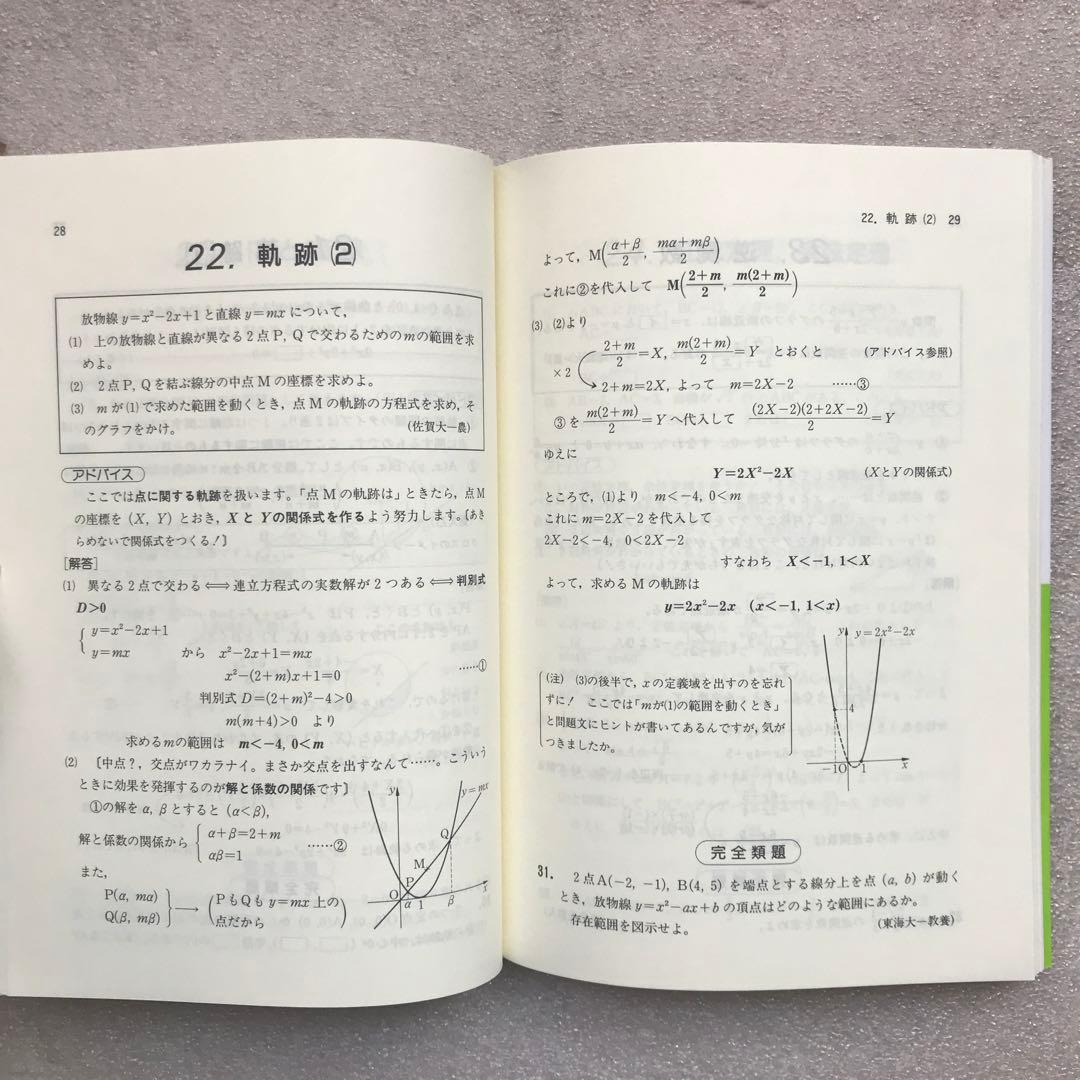 28
22. 軌跡(2)
放物線 y=x²−2x+1 と直線 y=mx について,
(1) 上の放物線と直線が異なる2点P, Qで交わるためのmの範囲を求
めよ。
(2) 2点P, Qを結ぶ線分の中点Mの座標を求めよ。
(3) mが(1)で求めた範囲を動くとき, 点Mの軌跡の方程式を求め, そ
のグラフをかけ。 (佐賀大一農)
アドバイス
ここでは点に関する軌跡を扱います。「点Mの軌跡は」ときたら, 点M
の座標を (X, Y) とおき, XとYの関係式を作るよう努力します。〔あき
らめないで関係式をつくる!〕
[解答]
(1) 異なる2点で交わる⟺連立方程式の実数解が2つある⟺判別式
D>0
{ y=x²−2x+1
y=mx から x²−2x+1=mx
x²−(2+m)x+1=0 ……①
判別式 D=(2+m)²−4>0
m(m+4)>0 より
求めるmの範囲は m<−4, 0<m
(2) 〔中点?, 交点がワカラナイ。まさか交点を出すなんて……。こういう
ときに効果を発揮するのが解と係数の関係です〕
①の解をα, βとすると (α<β),
解と係数の関係から { α+β=2+m
αβ=1 ……②
また,
P(α, mα)
Q(β, mβ) } ⟶ (PもQも y=mx 上の
点だから)
y
y=mx
Q
M
P
O α 1 β x
22. 軌跡(2) 29
よって, M((α+β)/2, (mα+mβ)/2)
これに②を代入して M((2+m)/2, m(2+m)/2)
(3) (2)より
(2+m)/2=X, m(2+m)/2=Y とおくと (アドバイス参照)
×2
2+m=2X, よって m=2X−2 ……③
③を m(2+m)/2=Y へ代入して (2X−2)(2+2X−2)/2=Y
ゆえに
Y=2X²−2X (XとYの関係式)
ところで, (1)より m<−4, 0<m
これに m=2X−2 を代入して
2X−2<−4, 0<2X−2
すなわち X<−1, 1<X
よって, 求めるMの軌跡は
y=2x²−2x (x<−1, 1<x)
(注) (3)の後半で, xの定義域を出すのを忘れ
ずに! ここでは「mが(1)の範囲を動くとき」
と問題文にヒントが書いてあるんですが, 気が
つきましたか。
y y=2x²−2x
4
−1 O 1 x
完全類題
31. 2点A(−2, −1), B(4, 5) を端点とする線分上を点 (a, b) が動く
とき, 放物線 y=x²−ax+b の頂点はどのような範囲にあるか。
存在範囲を図示せよ。 (東海大一教養)